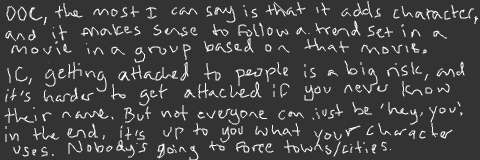 OOC, the most I can say is that it adds character,
and it makes sense to follow a trend set in a
movie in a group based on that movie.
IC, getting attached to people is a big risk, and
it's harder to get attached if you never know
their name. But not everyone can just be 'hey, you'.
in the end, it's up to you what your character
uses. Nobody's going to force towns/cities.